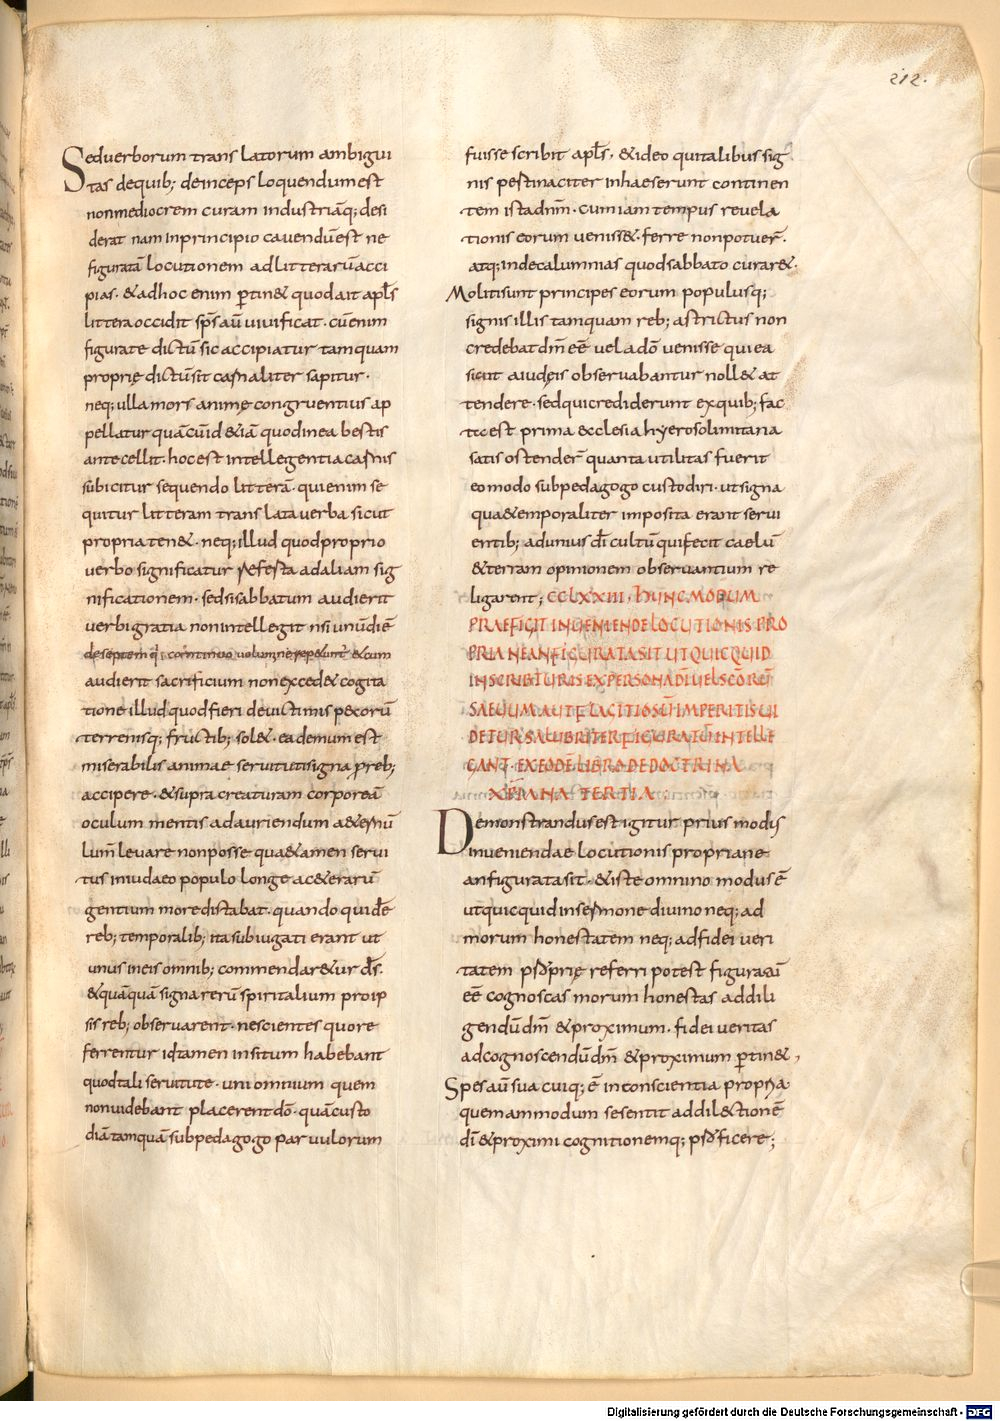 212.
Seduerborum trans latorum ambigui
tas dequib; deinceps loquendum est
nonmediocrem curam industriāq; desi
derat nam inprincipio cauendūest ne
figuratā locutionem adlitterarū acci
pias. &adhoc enim ꝑtin& quodait apłs
littera occidit sp̄s aū uiuificat. cūenim
figurate dictū sic accipiatur tamquam
proprię dictūsit carnaliter sapitur.
neq; ulla mors animę congruentius ap
pellatur quācūid &iā quodinea bestis
antecellit. hocest intellegentia carnis
subicitur sequendo litterā. quienim se
quitur litteram translata uerba sicut
propria ten&. neq; illud quodproprio
uerbo significatur refert adaliam sig
nificationem. sedsisabbatum audierit
uerbigratia nonintellegit nisi unūdiē
deseptem qi continuo uolumine repetunt &cum
audierit sacrificium nonexced& cogita
tione illud quodfieri deuictimis pecorū
terrenisq; fructib; sol&. ea demum est
miserabilis animae seruitutisigna ꝓ reb;
accipere. &supra creaturam corporeā
oculum mentis adauriendum a&ernū
lum̄ leuare nonposse qua&amen serui
tus iniudaeo populo longe ac&erarū
gentium moredistabat. quando quidē
reb; temporalib; ita subiugati erant ut
unus ineis omnib; commendar&ur d̄s.
&quāquā signa rerū spiritalium proip
sis reb; obseruarent. nescientes quore
ferrentur idtamen insitum habebant
quodtali seruitute. uni omnium quem
nonuidebant placerent dō. quā custo
diā tamquā sub pedagogo paruulorum
fuisse scribit apłs. &ideo quitalibus sig
nis pertinaciter inhaeserunt continen
tem ista dnm̄. cum iam tempus reuela
tionis eorum uenisse&. ferre nonpotuer̄.
atq; inde calumnias quodsabbato curar&.
Molitisunt principes eorum populusq;
signis illis tamquam reb; astrictus non
credebat dm̄ eē uel adō uenisse qui ea
sicut aiudęis obseruabantur noll& at
tendere. sed qui crediderunt exquib; fac
ta est prima ecclesia hyerosolimitana
satis ostender̄ quanta utilitas fuerit
eo modo subpedagogo custodiri. ut signa
qua&emporaliter imposita erant serui
entib; adunius dī cultū quifecit caelū
&terram opinionem obseruantium re
ligarent; CCLXXIII. HUNC MODUM
PRAEFIGIT INUENIENDE LOCUTIONIS PRO
PRIA NE AN FIGURATA SIT UT QUICQUID
IN SCRIBTURIS EX PERSONA DĪ UEL SC̄ORŪ
SAEUUM AUT FLAGITIOSŪ IMPERITIS UI
DETUR SALUBRITER FIGURATŪ INTELLE
GANT. EX EODĒ LIBRO DE DOCTRINA
XP̄IANA TERTIA.
Demonstrandus est igitur prius modus
inueniendae locutionis propriane
anfigurata sit. &iste omnino modus ē
ut quicquid insermone diuino neq; ad
morum honestatem neq; adfidei ueri
tatem ꝓprię referri potest figuratū
eē cognoscas morum honestas addili
gendū dm̄ &proximum. fidei ueritas
adcognoscendū dm̄ &proximum ꝑtin&,
Spes aū sua cuiq; ē inconscientia propria.
quemammodum sesentit addil&ionē
dī &proximi cognitionemq; ꝓficere;
Digitalisierung gefördert durch die Deutsche Forschungsgemeinschaft - DFG